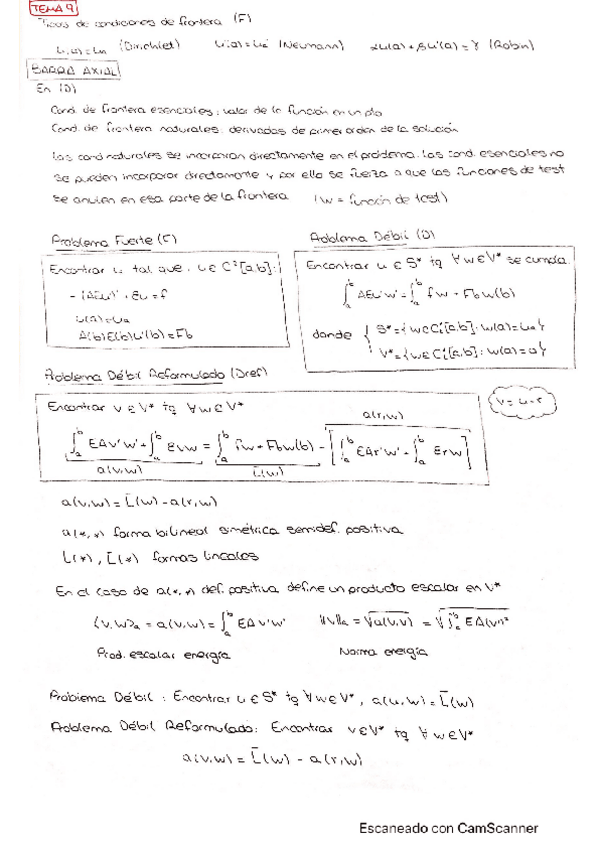 TEMA 9
Tipos de condiciones de frontera (F)
u(a)=ua (Dirichlet) u'(a)=ua' (Neumann) αu(a)+βu'(a)=γ (Robin)
BARRA AXIAL
En (D)
Cond. de frontera esenciales: valor de la función en un pto
Cond. de frontera naturales: derivadas de primer orden de la solución
Las cond naturales se incorporan directamente en el problema. Las cond. esenciales no
se pueden incorporar directamente y por ello se fuerza a que las funciones de test
se anulen en esa parte de la frontera (w = función de test)
Problema Fuerte (F)
Encontrar u tal que u∈C²[a,b]:
-(AEu')' + Eu = f
u(a)=ua
A(b)E(b)u'(b)=Fb
Problema Débil (D)
Encontrar u∈S* tq ∀w∈V* se cumpla
∫ₐᵇ AEu'w' = ∫ₐᵇ fw + Fbw(b)
donde { S*={w∈C¹[a,b]: w(a)=ua}
V*={w∈C¹[a,b]: w(a)=0}
Problema Débil Reformulado (Dref)
v = u-r
Encontrar v∈V* tq ∀w∈V*
a(r,w)
∫ₐᵇ EAv'w' + ∫ₐᵇ Evw = ∫ₐᵇ fw + Fbw(b) - [∫ₐᵇ EAr'w' + ∫ₐᵇ Erw]
a(v,w) L̄(w)
a(v,w) = L̄(w) - a(r,w)
a(*,*) forma bilineal simétrica semidef. positiva
L(*), L̄(*) formas lineales
En el caso de a(*,*) def. positiva define un producto escalar en V*
(v,w)a = a(v,w) = ∫ₐᵇ EAv'w' ||v||a = √a(v,v) = √∫ₐᵇ EA(v')²
Prod. escalar energía Norma energía
Problema Débil: Encontrar u∈S* tq ∀w∈V*, a(u,w) = L̄(w)
Problema Débil Reformulado: Encontrar v∈V* tq ∀w∈V*
a(v,w) = L̄(w) - a(r,w)
Escaneado con CamScanner